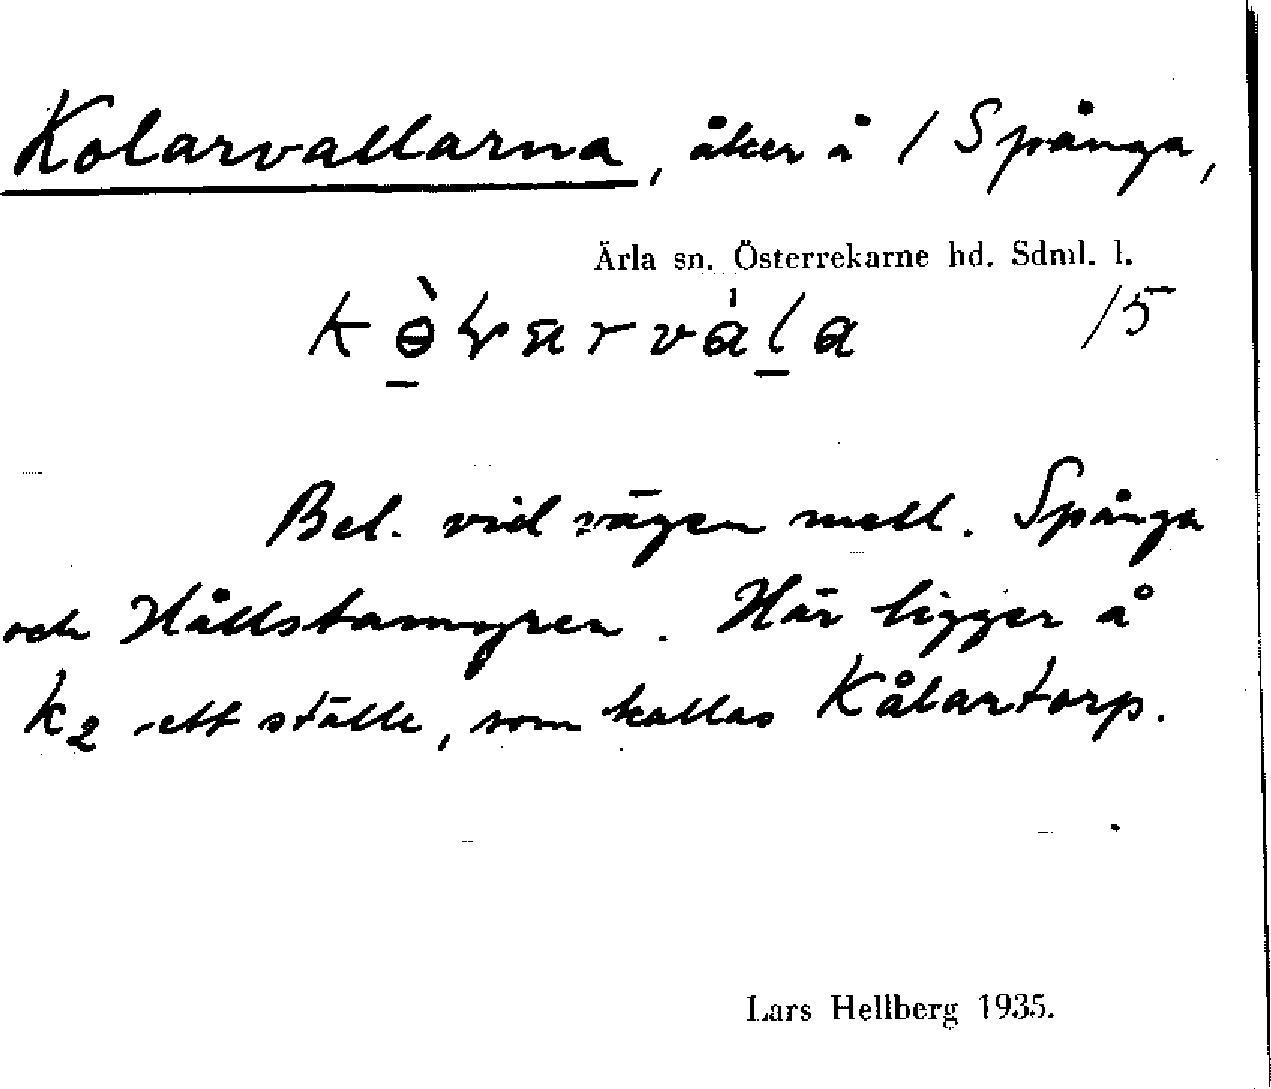 Kolarvallarna, åker å 1 Spånga,
Ärla sn. Österrekarne hd. Sdml. l.
15
Bel. vid vägen mell. Spånga
och Hållstamogren. Här ligger å
k2 ett ställe, som kallas Kålartorp.
Lars Hellberg 1935.